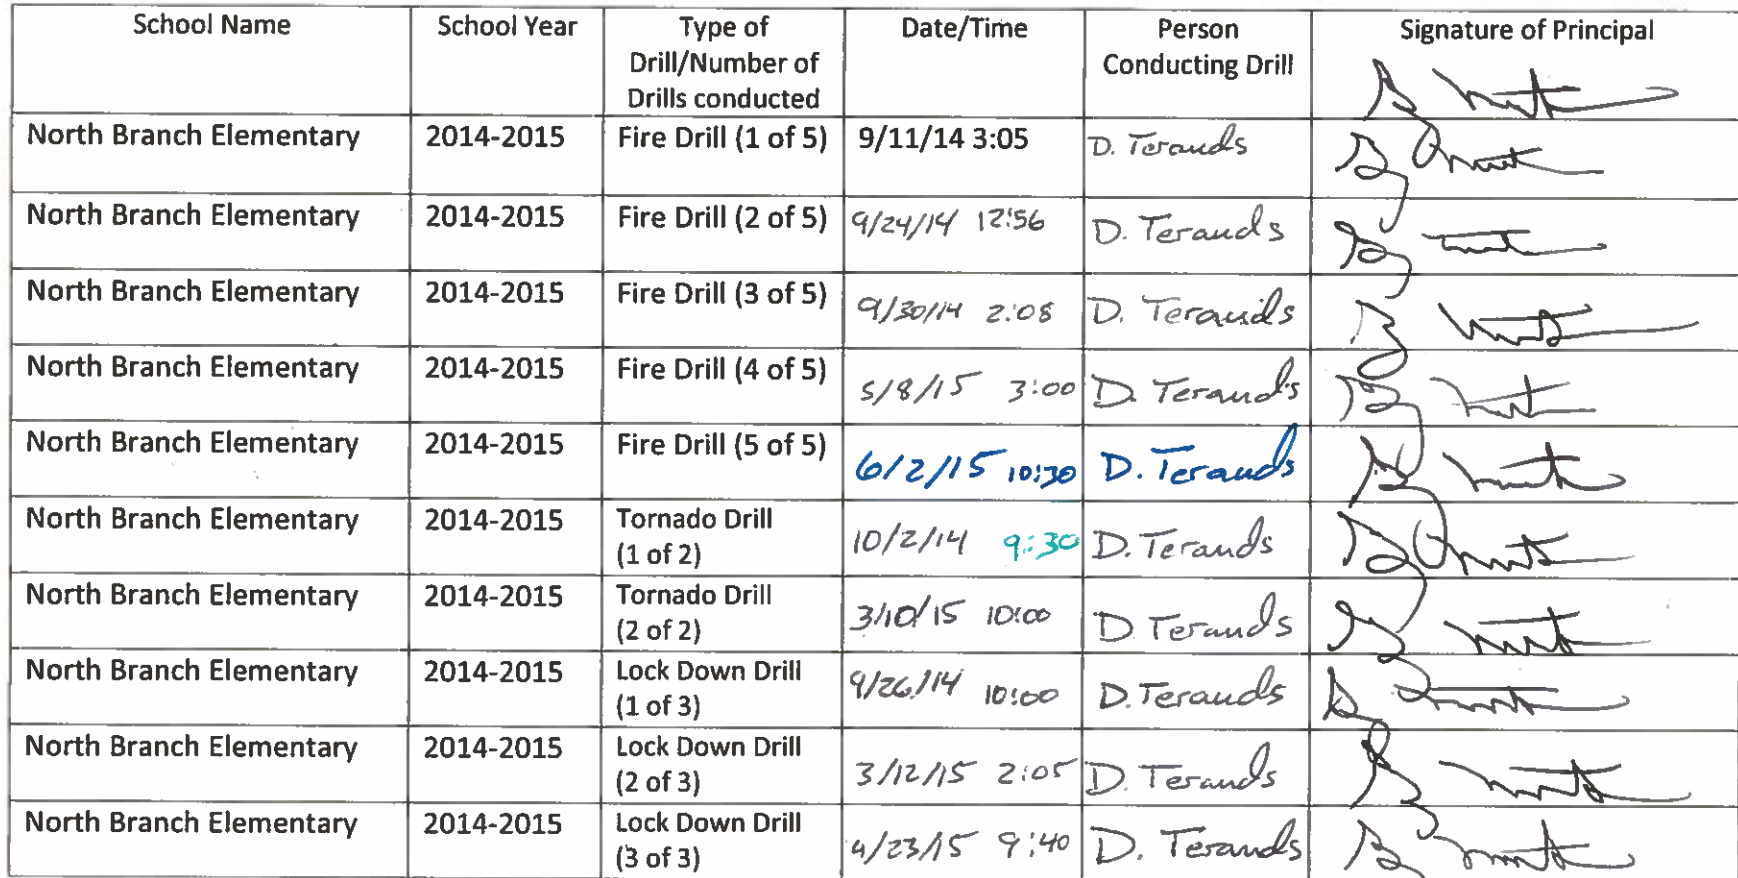 School Name School Year Type of Drill/Number of Drills conducted Date/Time Person Conducting Drill Signature of Principal
North Branch Elementary 2014-2015 Fire Drill (1 of 5) 9/11/14 3:05 D. Terauds
North Branch Elementary 2014-2015 Fire Drill (2 of 5) 9/24/14 12:56 D. Terauds
North Branch Elementary 2014-2015 Fire Drill (3 of 5) 9/30/14 2:08 D. Terauds
North Branch Elementary 2014-2015 Fire Drill (4 of 5) 5/8/15 3:00 D. Terauds
North Branch Elementary 2014-2015 Fire Drill (5 of 5) 6/2/15 10:30 D. Terauds
North Branch Elementary 2014-2015 Tornado Drill (1 of 2) 10/2/14 9:30 D. Terauds
North Branch Elementary 2014-2015 Tornado Drill (2 of 2) 3/10/15 10:00 D Terauds
North Branch Elementary 2014-2015 Lock Down Drill (1 of 3) 9/26/14 10:00 D. Terauds
North Branch Elementary 2014-2015 Lock Down Drill (2 of 3) 3/12/15 2:05 D. Terauds
North Branch Elementary 2014-2015 Lock Down Drill (3 of 3) 4/23/15 9:40 D. Terauds